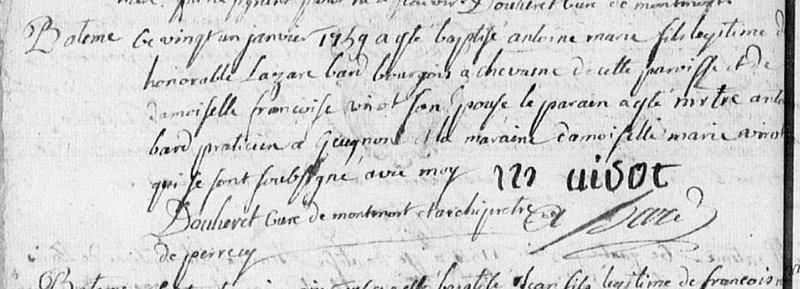 Douheret Curé de montmort
Bateme Ce vingt un janvier 1759 a esté baptisé antoine marie fils legitime de
honorable Lazare bard bourgois a chevasne de cette paroisse et de
damoiselle francoise virot son Epouse le parain a esté mrtre anto
bard praticien a Geugnon et la maraine damoiselle marie virot
qui se sont soubsigné avec moy m uirot
Douheret Curé de montmort et archipretre a Bard
de perrecy
Bateme baptisé Jean fils legitime de francois